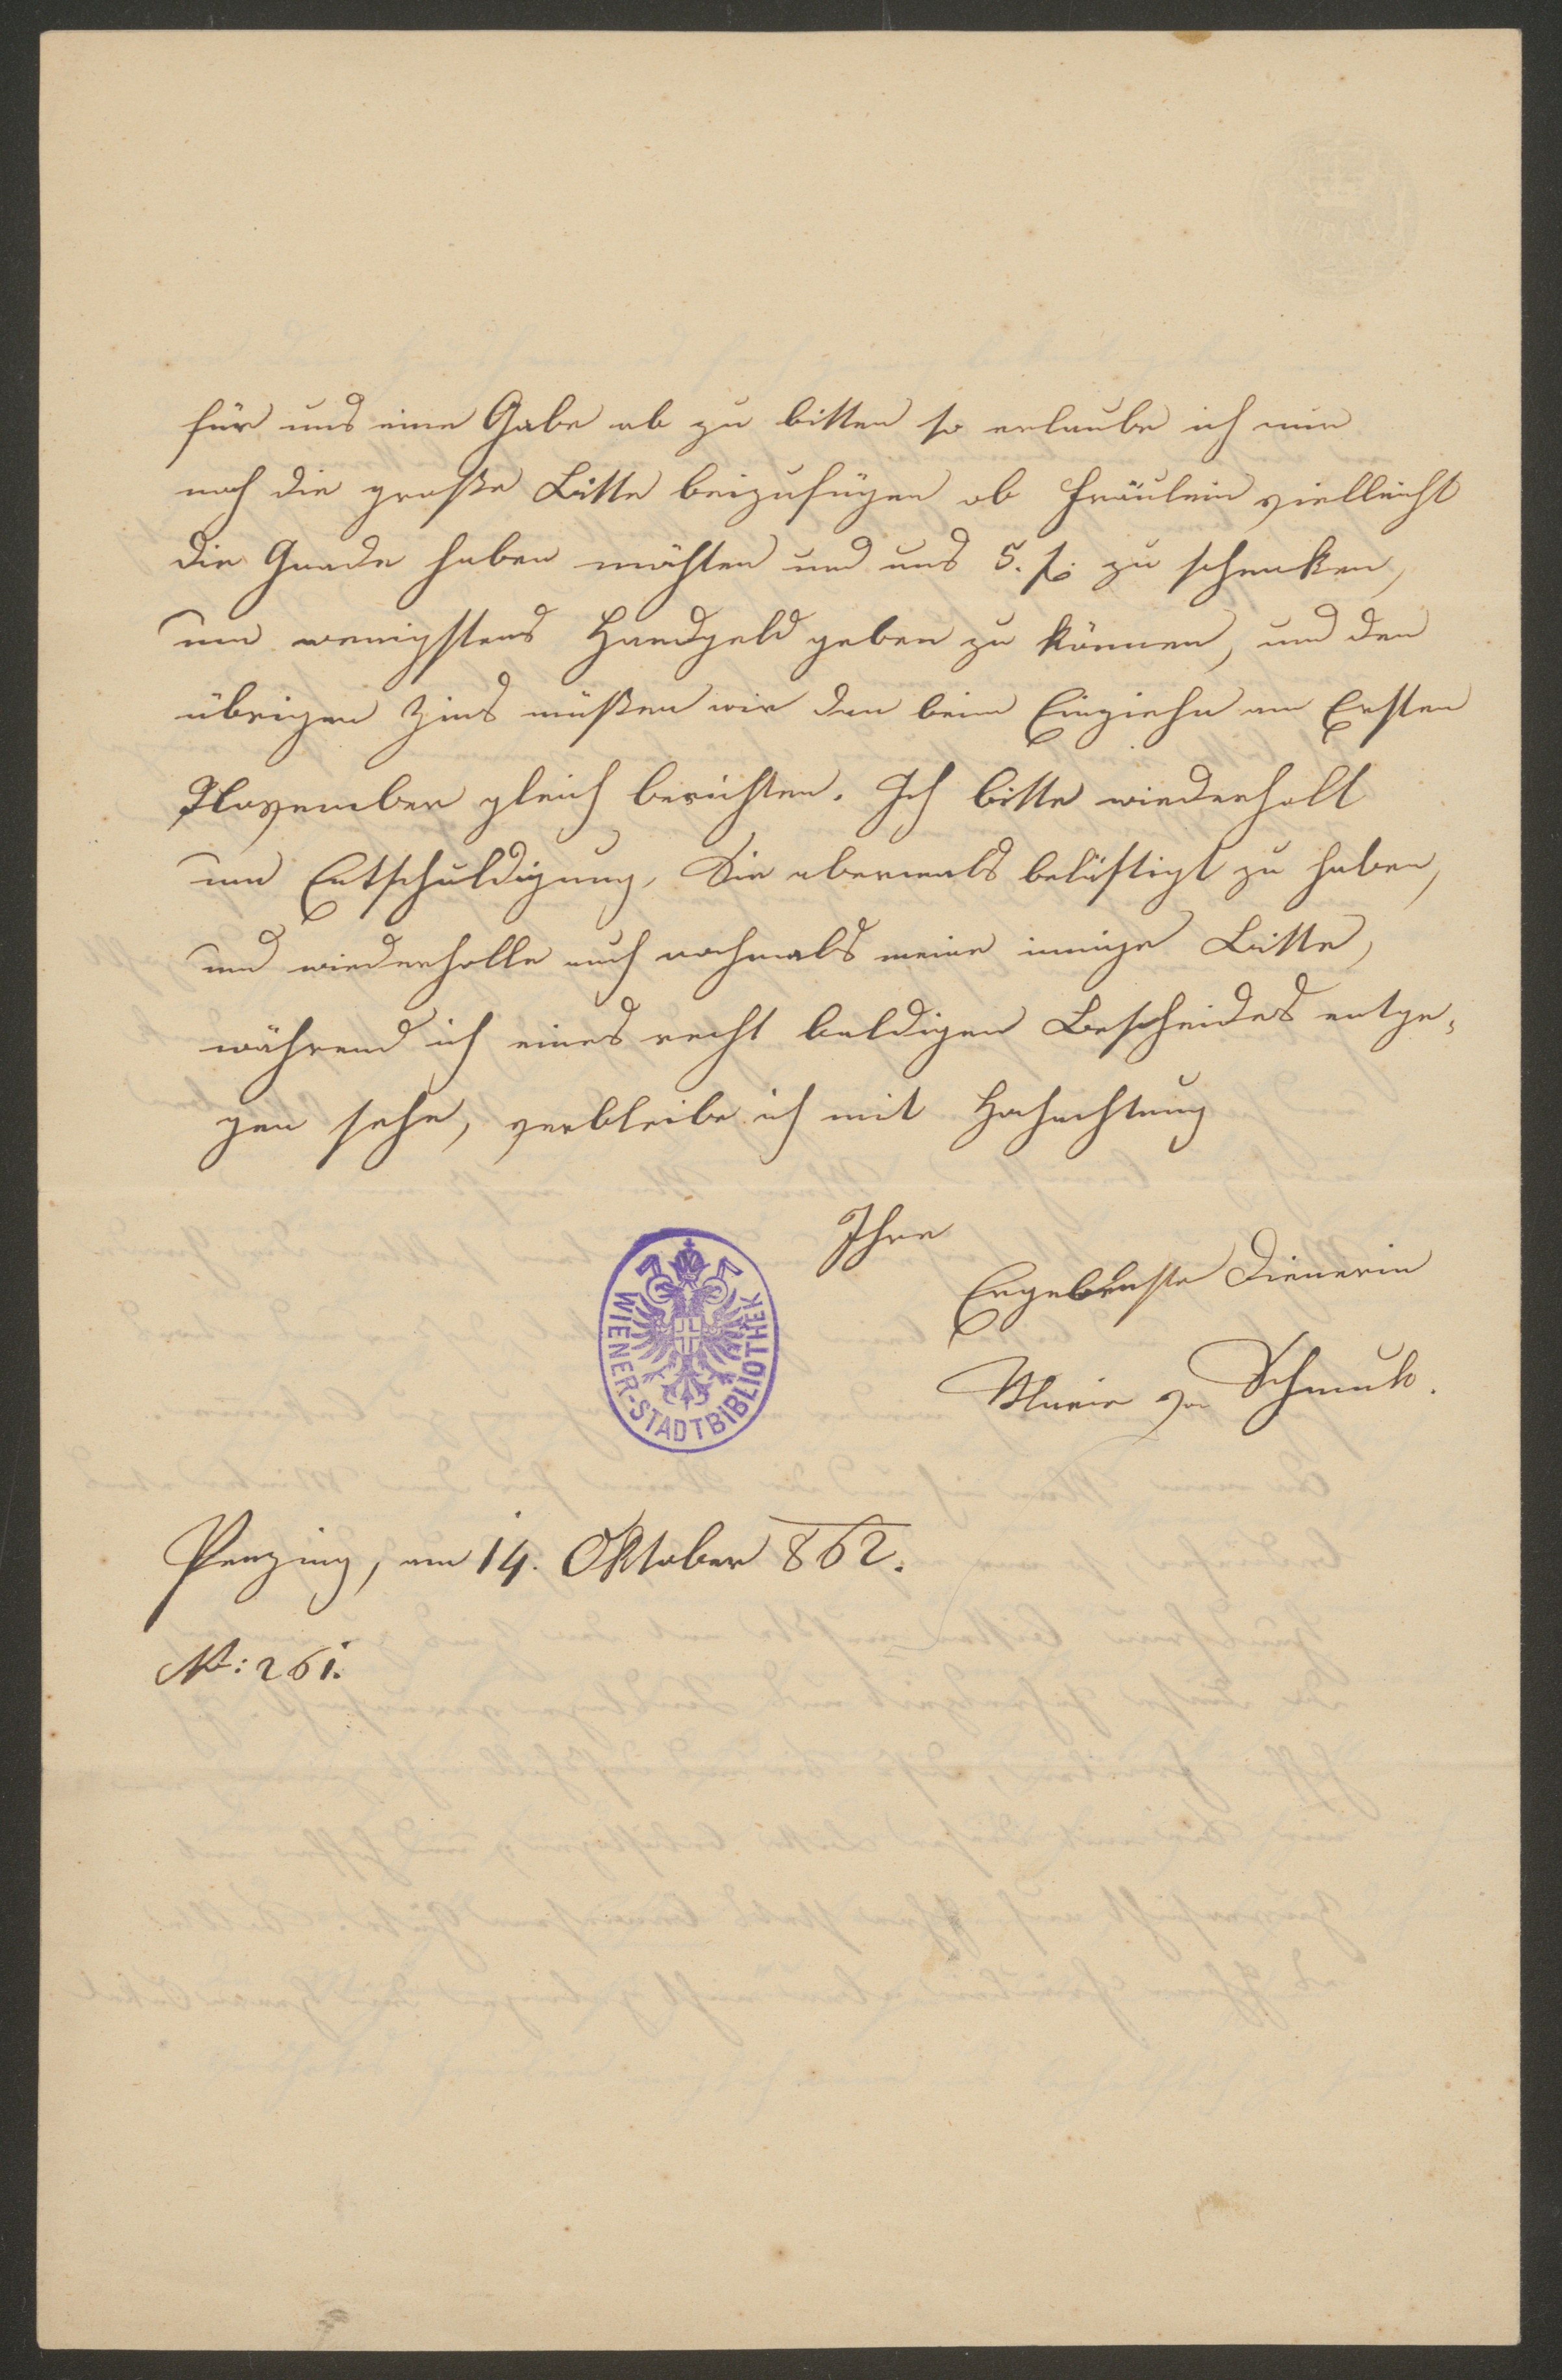 für uns eine Gabe ab zu bitten so erlaube ich mir
noch die große Bitte beizufügen ob Fräulein vielleicht
die Gnade haben möchten und uns 5. fl. zu schenken,
um wenigstens Handgeld geben zu können, und den
übrigen Zins müßen wir dan beim Einziehn am Ersten
November gleich berichten. Ich bitte wiederholt
um Entschuldigung, Sie abermals belästigt zu haben,
und wiederholle auch nochmals meine innige Bitte,
während ich eines recht baldigen Bescheides entge-
gen sehe, verbleibe ich mit Hochachtung
Ihre
Ergebenste Dienerin
Marie von
WIENER-STADTBIBLIOTHEK
Penzing, am 14. Oktober 862.
No: 261.